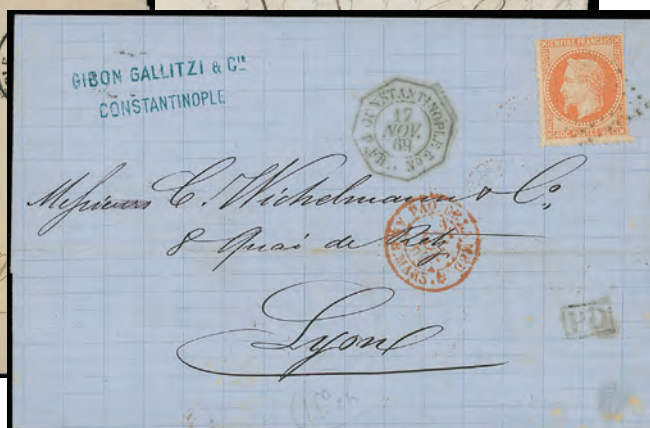 GIBON GALLITZI & Cie
CONSTANTINOPLE
17
NOV.
69
EMPIRE FRANÇAIS
Messieurs C. Wichelmann & Co.
8 Quai de Retz
Lyon
PD